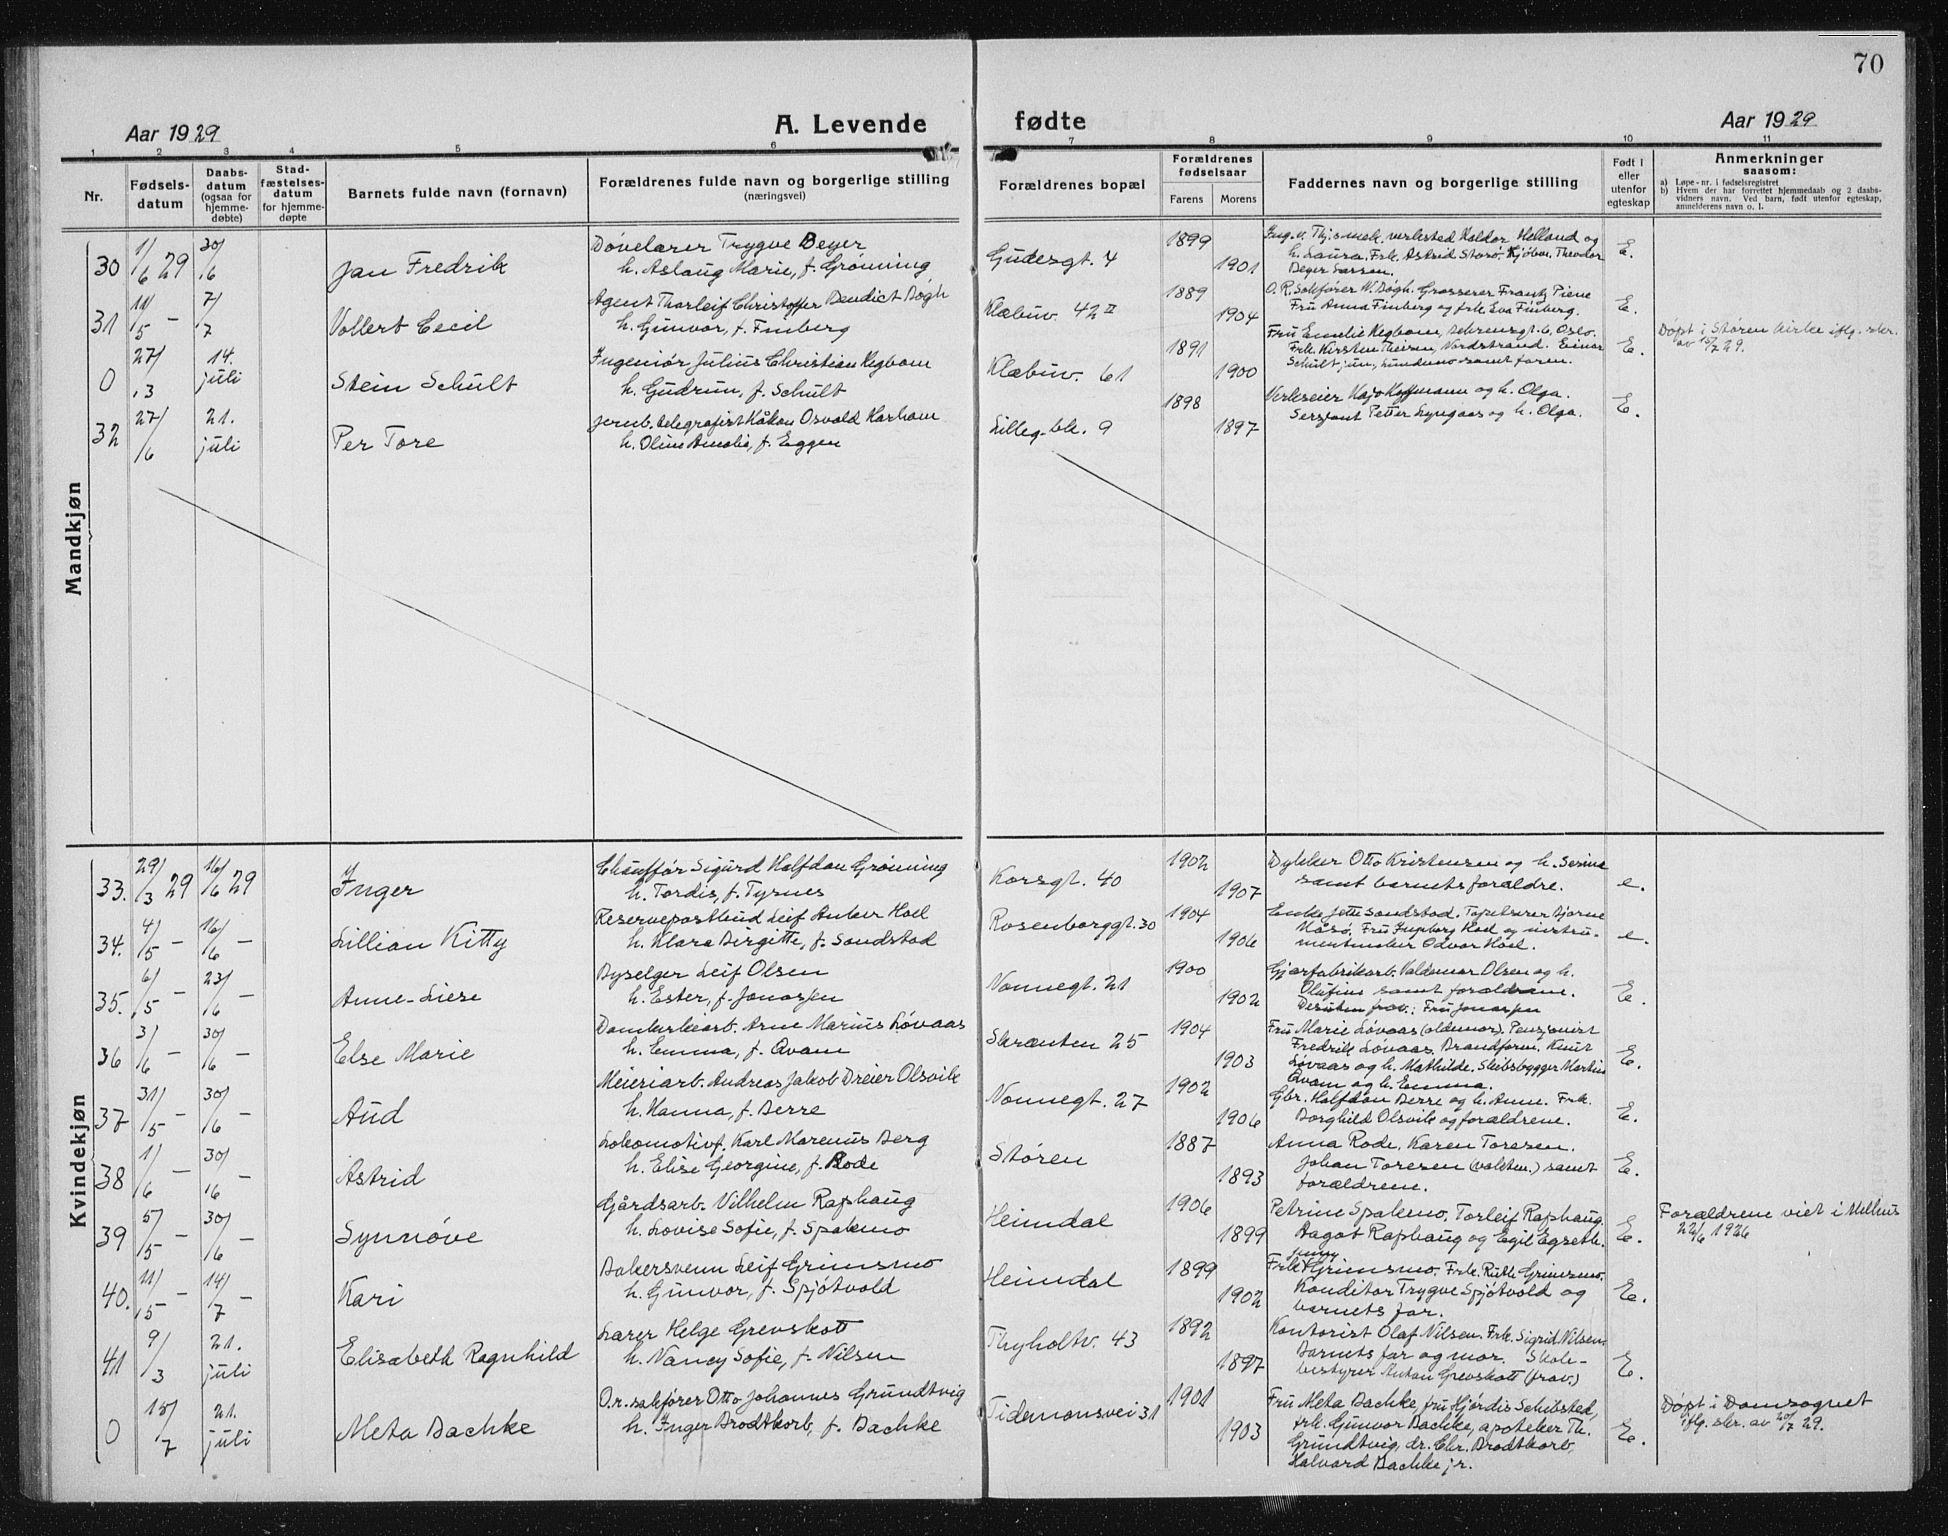 70
Aar 1929
A. Levende
fødte
Aar 1929
1 2 3 4 5 6 7 8 9 10 11
Nr.
Fødsels-
datum
Daabs-
datum
(ogsaa for
hjemme-
døbte)
Stad-
fæstelses-
datum
for hjemme-
døpte
Barnets fulde navn (fornavn)
Forældrenes fulde navn og borgerlige stilling
(næringsvei)
Forældrenes bopæl
Forældrenes
fødselsaar
Farens Morens
Faddernes navn og borgerlige stilling
Født i
eller
utenfor
egteskap
Anmerkninger
saasom:
a) Løpe-nr. i fødselsregistret
b) Hvem der har forrettet hjemmedaab og 2 daabs-
vidners navn. Ved barn, født utenfor egteskap,
anmelderens navn o. l.
Mandkjøn
30 1/6 29 30/6 Jan Fredrik
Døvelærer Trygve Beyer
h. Aslaug Marie, f. Grønning
Gudesgt. 4 1899 1901
Ing. v. Thjs mek. verksted Haldor Helland og
h. Laura. Frk. Astrid Storø. Kjøbm. Theodor
Beyer Larsen.
E.
31 11/5 - 7/7 Vollert Cecil
Agent Thorleif Christoffer Bendict Bøgh
h. Gunvor, f. Finberg
Klæbuv. 42 II 1889 1904
O. R. Sakfører W. Bøgh. Grosserer Frantz Piene
Fru Anna Finberg og frk Eva Finberg.
E.
0 27/3 14. juli Stein Schult
Ingeniør Julius Christian Hegbom
h. Gudrun, f. Schult
Klæbuv. 61 1891 1900
Fru Emilie Hegbom, Oslo.
Frk. Kirsten Theisen, Nordstrand. Einar
Schult jun. samt faren.
E.
Døpt i Støren kirke iflg. skr.
av 15/7 29.
32 27/6 21. juli Per Tore
Jernb. telegrafist Håkon Osvald Karhom
h. Oline Amalia, f. Eggen
Lilleg.bk. 9 1898 1897
Verkseier Kajo Koffmann og h. Olga.
Sersjant Petter Lyngaas og h. Olga.
E.
Kvindekjøn
33. 29/3 29 16/6 29 Inger
Chauffør Sigurd Halfdan Grønning
h. Tordis, f. Tysnes
Korsgt. 40 1902 1907
Dykker Otto Kristensen og h. Serina
samt barnets forældre.
e.
34. 4/5 - 16/6 - Lillian Kitty
Reservepostbud Leif Anker Hoel
h. Klara Birgitte, f. Sandstad
Rosenborggt. 30 1904 1906
Enke Jette Sandstad. Tapetserer Bjarne
Måsø, Fru Ingborg Hoel og instru-
mentmaker Odvar Hoel.
e.
35. 6/5 - 23/6 - Anne-Liese
Byselger Leif Olsen
h. Ester, f. Jonassen
Nonnegt. 21 1900 1902
Gjærfabrikarb. Valdemar Olsen og h.
Olufine samt forældrene.
Desuten frav.: Fru Jonassen
E.
36 3/6 - 30/6 - Else Marie
Damterkiarb. Arne Marius Løvaas
h. Emma, f. Qvam
Skrænten 25 1904 1903
Fru Marie Løvaas (oldemor). Pensjonist
Fredrik Løvaas. Brandform. Knut
Løvaas og h. Mathilde. Skibsbygger Martin
Qvam og h. Emma.
E.
37 31/5 - 30/6 - Aud
Meieriarb. Andreas Jakob Dreier Olsvik
h. Hanna, f. Berre
Nonnegt. 27 1902 1906
Gbr. Halfdan Berre og h. Anne. Frk.
Borghild Olsvik og forældrene.
E.
38 1/6 - 30/6 - Astrid
Lokomotivf. Karl Marenus Berg
h. Elise Georgine, f. Rode
Støren 1887 1893
Anna Rode. Karen Toresen.
Johan Toresen (valsten.) samt
forældrene.
E.
39 5/5 - 30/6 - Synnøve
Gårdsarb. Vilhelm Raphaug
h. Lovise Sofie, f. Spalemo
Heimdal 1906 1899
Petrine Spalemo, Torleif Raphaug.
Dagot Raphaug og Egil Egseth.
E.
Forældrene viet i Melhus
22/6 1926
40. 11/5 - 14/7 - Kari
Bakersvenn Leif Grimsmo
h. Gunvor, f. Spjøtvold
Heimdal 1899 1902
Frk. Jenny Grimsmo. Frk. Ruth Grimsmo.
Konditor Trygve Spjøtvold og
barnets far.
E.
41 9/3 21. juli Elisabeth Ragnhild
Lærer Helge Grevskott
h. Nancy Sofie, f. Nilsen
Thyholtv. 43 1892 1897
Kontorist Olaf Nilsen. Frk. Sigrid Nilsen.
Barnets far og mor. Skole-
bestyrer Anton Grevskott (frav.)
E.
0 15/7 21. juli Meta Bachke
O.r. sakfører Otto Johannes Grundtvig
h. Inger Brodtkorb, f. Bachke
Tidemansvei 31 1901 1903
Fru Meta Bachke, fru Hjørdis Schibsted,
frk. Gunvor Bachke, apoteker Th.
Grundtvig, dr. Chr. Brodtkorb,
Halvard Bachke jr.
E.
Døpt i Domsognet
iflg. skr. av 20/7 29.